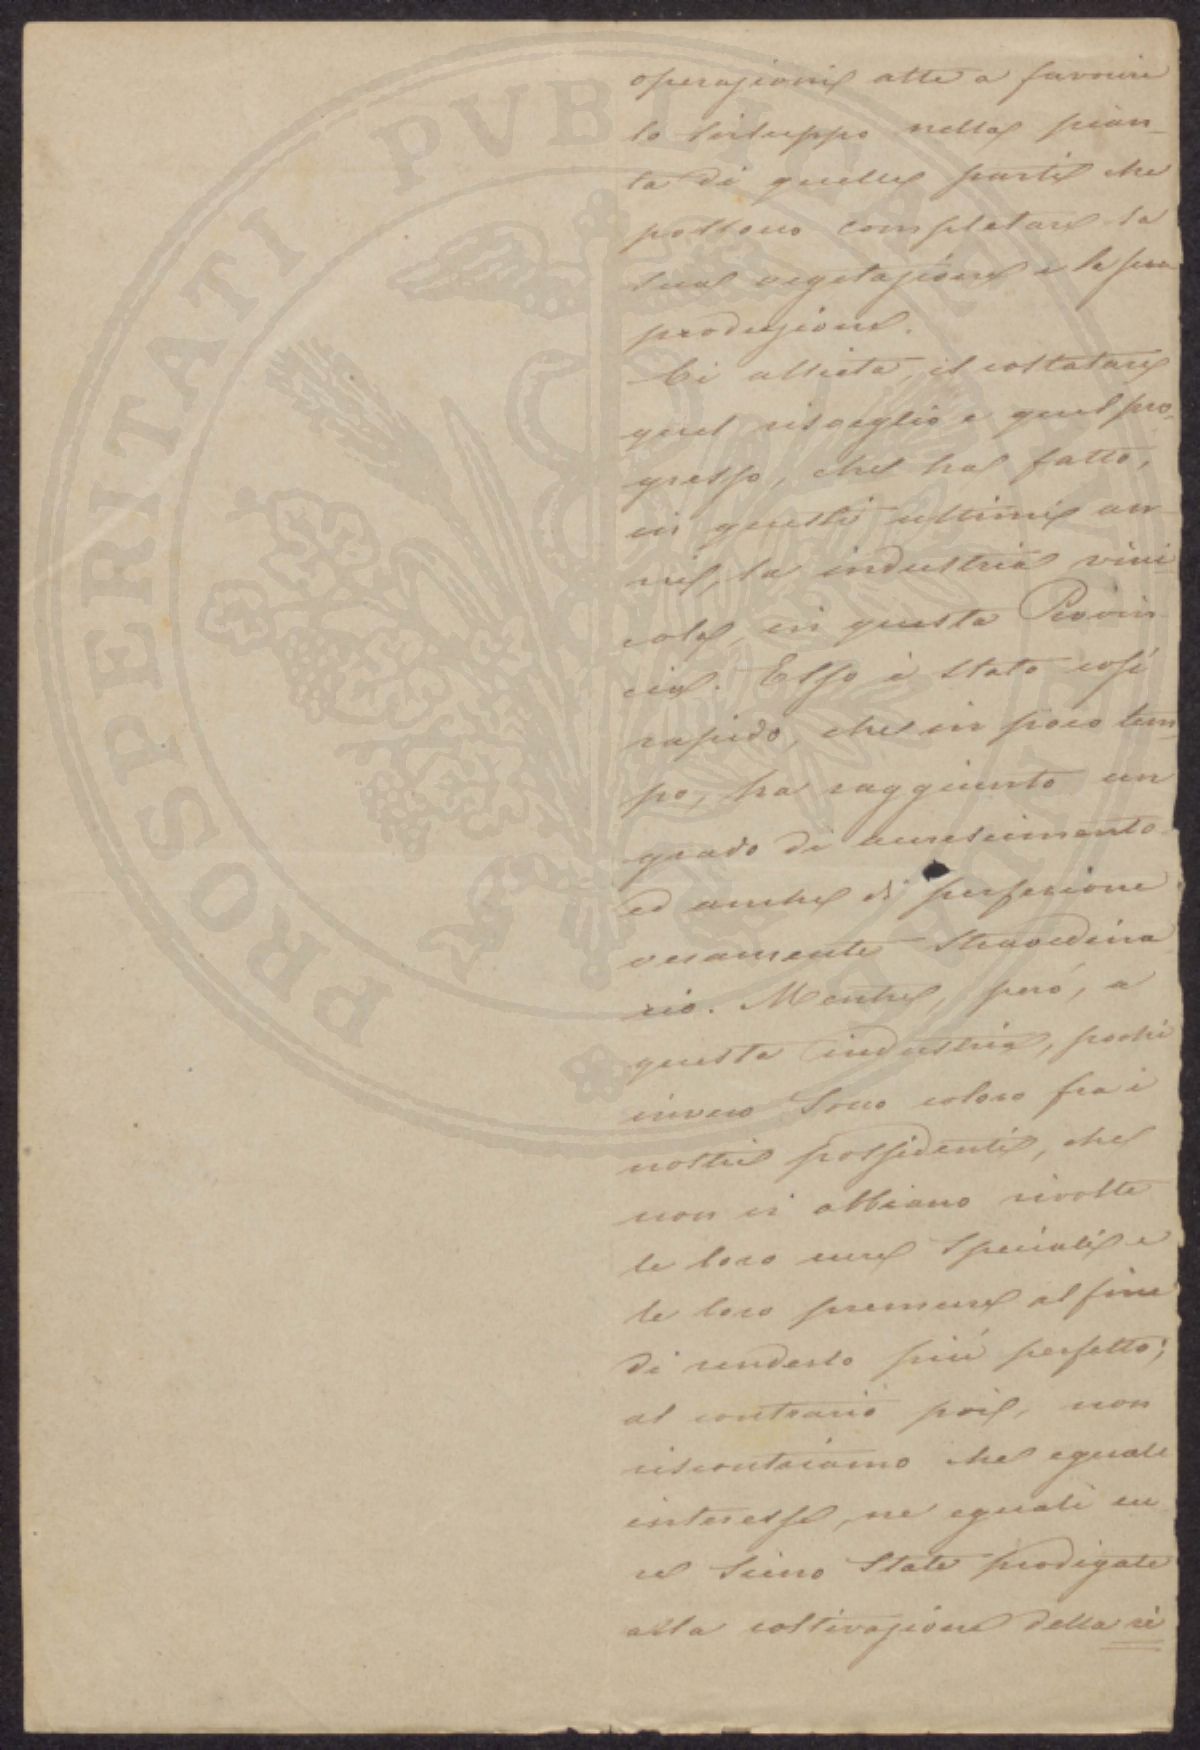 operazioni atte a favorire
lo sviluppo nella pian-
ta di quelle parti che
possono completare la
sua vegetazione e la sua
produzione.
Ci allieta, il costatare
quel risveglio e quel pro-
gresso, che ha fatto,
in questi ultimi an-
ni, la industria vini-
cola, in questa Provin-
cia. Esso è stato così
rapido, che in poco tem-
po, ha raggiunto un
grado di accrescimento
ed anche di perfezione
veramente straordina
rio. Mentre, però, a
questa industria, pochi
invero sono coloro fra i
nostri possidenti, che
non vi abbiano rivolte
le loro cure speciali e
le loro premure al fine
di renderlo più perfetto;
al contrario poi, non
riscontriamo che eguale
interesse, ne eguali cu
re sieno state prodigate
alla coltivazione della vi
PROSPERITATI PVBLICAE